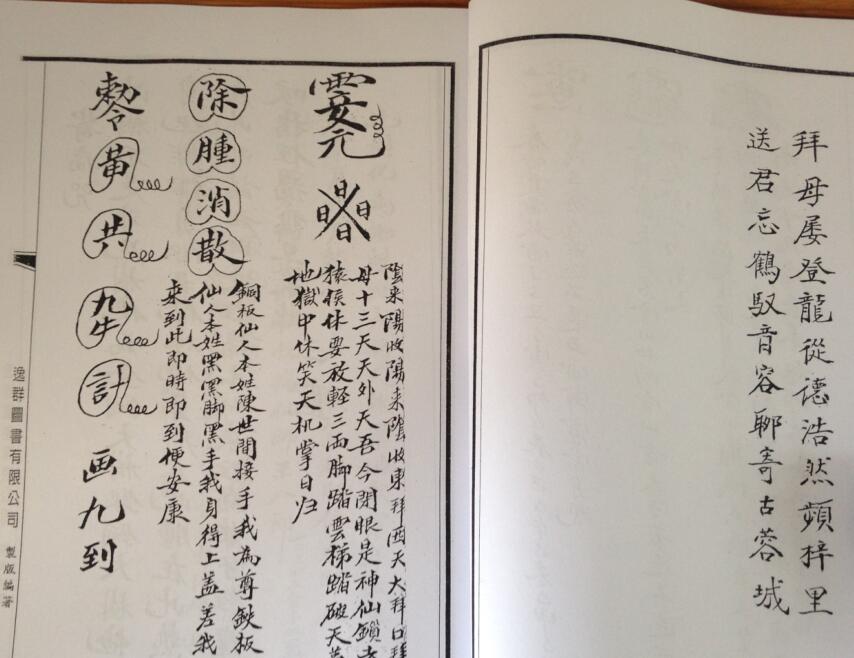 拜母屡登龍從德浩然蘋梓里
送君忘鶴馭音容聊寄古蓉城
陰来陽收陽来陰收東拜西天大拜口拜
母十三天天外天吾今閉眼是神仙鎖
猿猴休要放輕三両脚踏雲梯踏破天
地獄中休笑天机掌日归
除腫消散
銅板仙人本姓陳世間接手我為尊鉄板
仙人本姓黑黑脚黑手我身得上盖差我
来到此即時即到便安康
黄
計
画九到
逸群圖書有限公司 製版編著